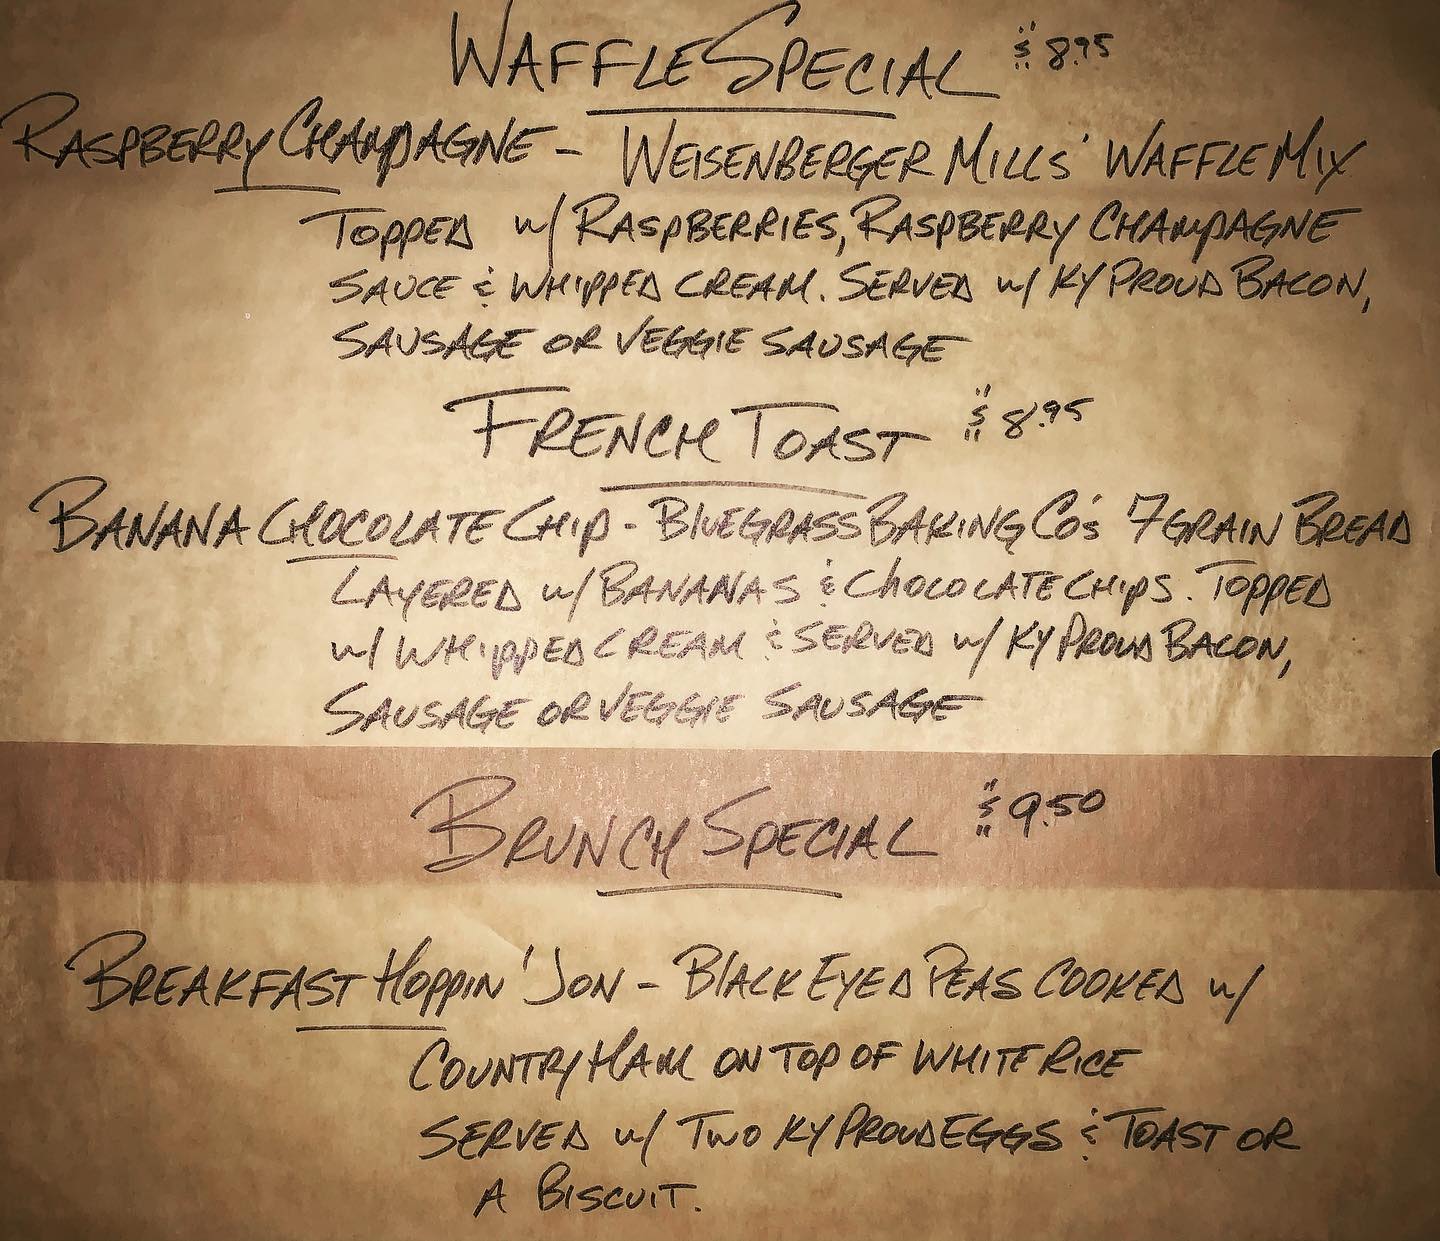 WAFFLE SPECIAL $8.95
RASPBERRY CHAMPAGNE - WEISENBERGER MILLS' WAFFLE MIX
TOPPED w/ RASPBERRIES, RASPBERRY CHAMPAGNE
SAUCE & WHIPPED CREAM. SERVED w/ KY PROUD BACON,
SAUSAGE OR VEGGIE SAUSAGE
FRENCH TOAST $8.95
BANANA CHOCOLATE CHIP - BLUEGRASS BAKING CO'S 7 GRAIN BREAD
LAYERED w/ BANANAS & CHOCOLATE CHIPS. TOPPED
w/ WHIPPED CREAM & SERVED w/ KY PROUD BACON,
SAUSAGE OR VEGGIE SAUSAGE
BRUNCH SPECIAL $9.50
BREAKFAST HOPPIN' JON - BLACK EYED PEAS COOKED w/
COUNTRY HAM ON TOP OF WHITE RICE
SERVED w/ TWO KY PROUD EGGS & TOAST OR
A BISCUIT.